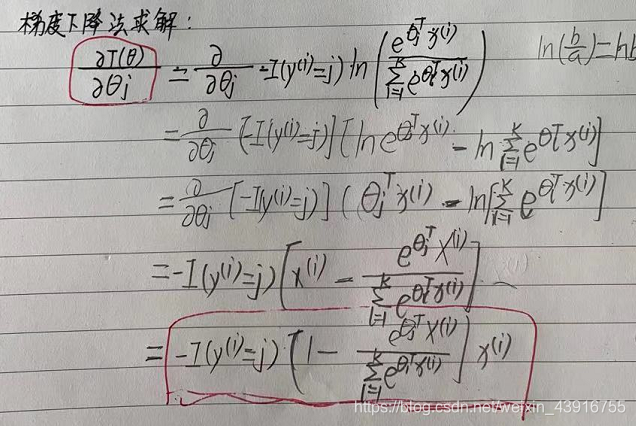 梯度下降法求解:
∂J(θ)/∂θj = ∂/∂θj -I(y^(i)=j) ln( e^{θj^T x^(i)} / Σ_{l=1}^{k} e^{θl^T x^(i)} ) ln(b/a)=lnb
= ∂/∂θj [-I(y^(i)=j)] [ln e^{θj^T x^(i)} - ln Σ_{l=1}^{k} e^{θl^T x^(i)}]
= ∂/∂θj [-I(y^(i)=j)] (θj^T x^(i) - ln[Σ_{l=1}^{k} e^{θl^T x^(i)}]
= -I(y^(i)=j) [x^(i) - e^{θj^T x^(i)} / Σ_{l=1}^{k} e^{θl^T x^(i)}]
= -I(y^(i)=j) [1 - e^{θj^T x^(i)} / Σ_{l=1}^{k} e^{θl^T x^(i)}] x^(i)
https://blog.csdn.net/weixin_43916755